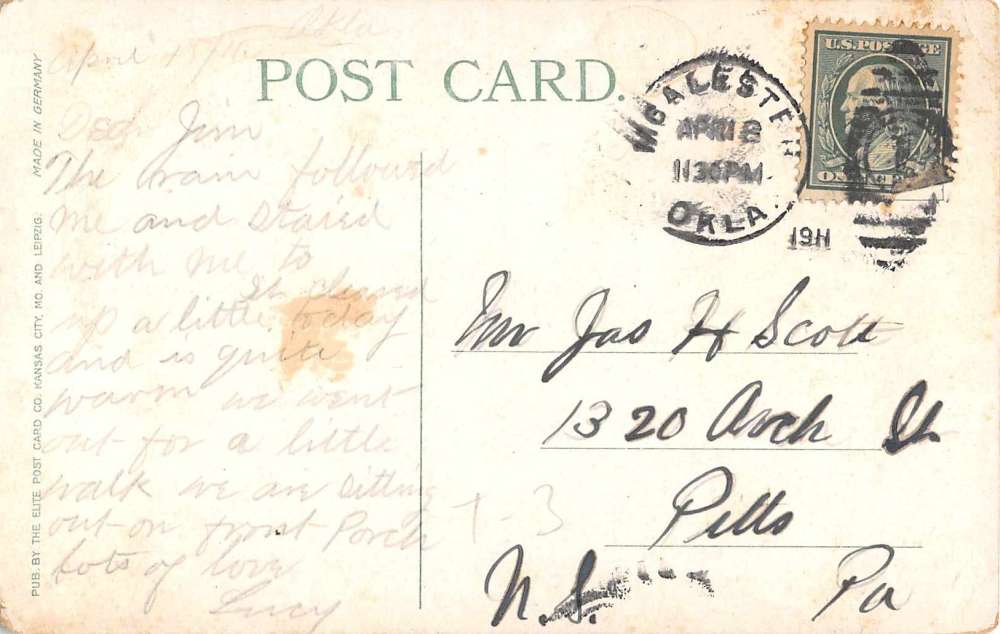 Okla
April
POST CARD.
U.S. POSTAGE
McALESTER
APR 12
1130PM
OKLA.
1911
MADE IN GERMANY
PUB. BY THE ELITE POST CARD CO. KANSAS CITY, MO. AND LEIPZIG.
Jim
The rain followed
me and staied
with me to
It cleared
up a little, today
and is quite
warm we went
out for a little
walk we are sitting
out on front Porch
Lots of love
Lucy
1-3
Mr Jas H Scott
1320 Arch St
Pitts
N.S. Pa